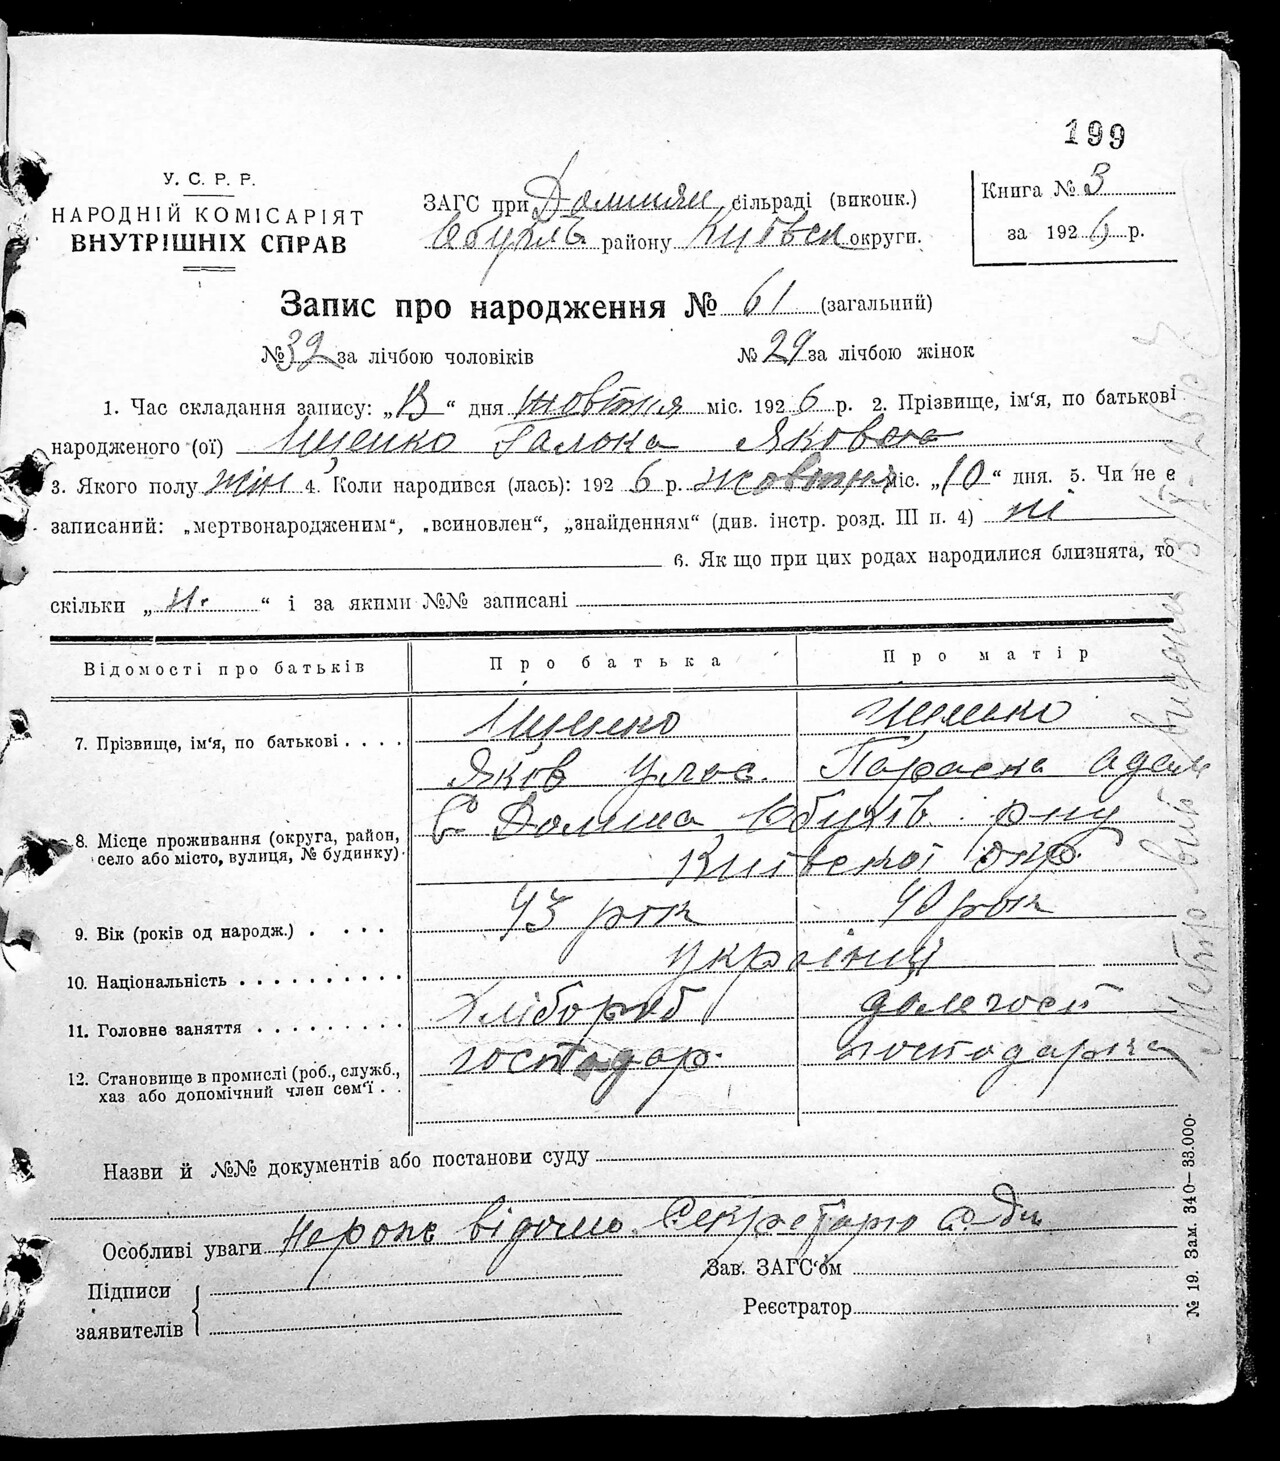 199
У. С. Р. Р.
НАРОДНІЙ КОМІСАРІЯТ
ВНУТРІШНІХ СПРАВ
ЗАГС при Долинян сільраді (виконк.)
Обухів району Київськ округи.
Книга № 3
за 1926 р.
Запис про народження № 61 (загальний)
№ 32 за лічбою чоловіків № 29 за лічбою жінок
1. Час складання запису: „13“ дня жовтня міс. 1926 р. 2. Прізвище, ім'я, по батькові
народженого (ої) Іщенко Галька Яковна
3. Якого полу жін 4. Коли народився (лась): 1926 р. жовтня міс. „10“ дня. 5. Чи не є
записаний: „мертвонародженим“, „всиновлен“, „знайденням“ (див. інстр. розд. III п. 4) ні
6. Як що при цих родах народилися близнята, то
скільки „н.“ і за якими №№ записані
Відомості про батьків Про батька Про матір
7. Прізвище, ім'я, по батькові . . . . Іщенко Іщенко
Яків Улас. Параска Адам
8. Місце проживання (округа, район,
село або місто, вулиця, № будинку). С Долина Обухів. р-ну
Київської окр.
9. Вік (років од народж.) . . . . 43 рок 40 рок
10. Національність . . . . . . . . . . українці
11. Головне заняття . . . . . . . . . Хлібороб домгосп
12. Становище в промислі (роб., служб.,
хаз або допомічний член сем'ї . . господар. господарка
Назви й №№ документів або постанови суду
Особливі уваги відомо Секретарю
Підписи
заявителів
Зав. ЗАГС'ом
Реєстратор
№ 19. Зам. 340–33.000.